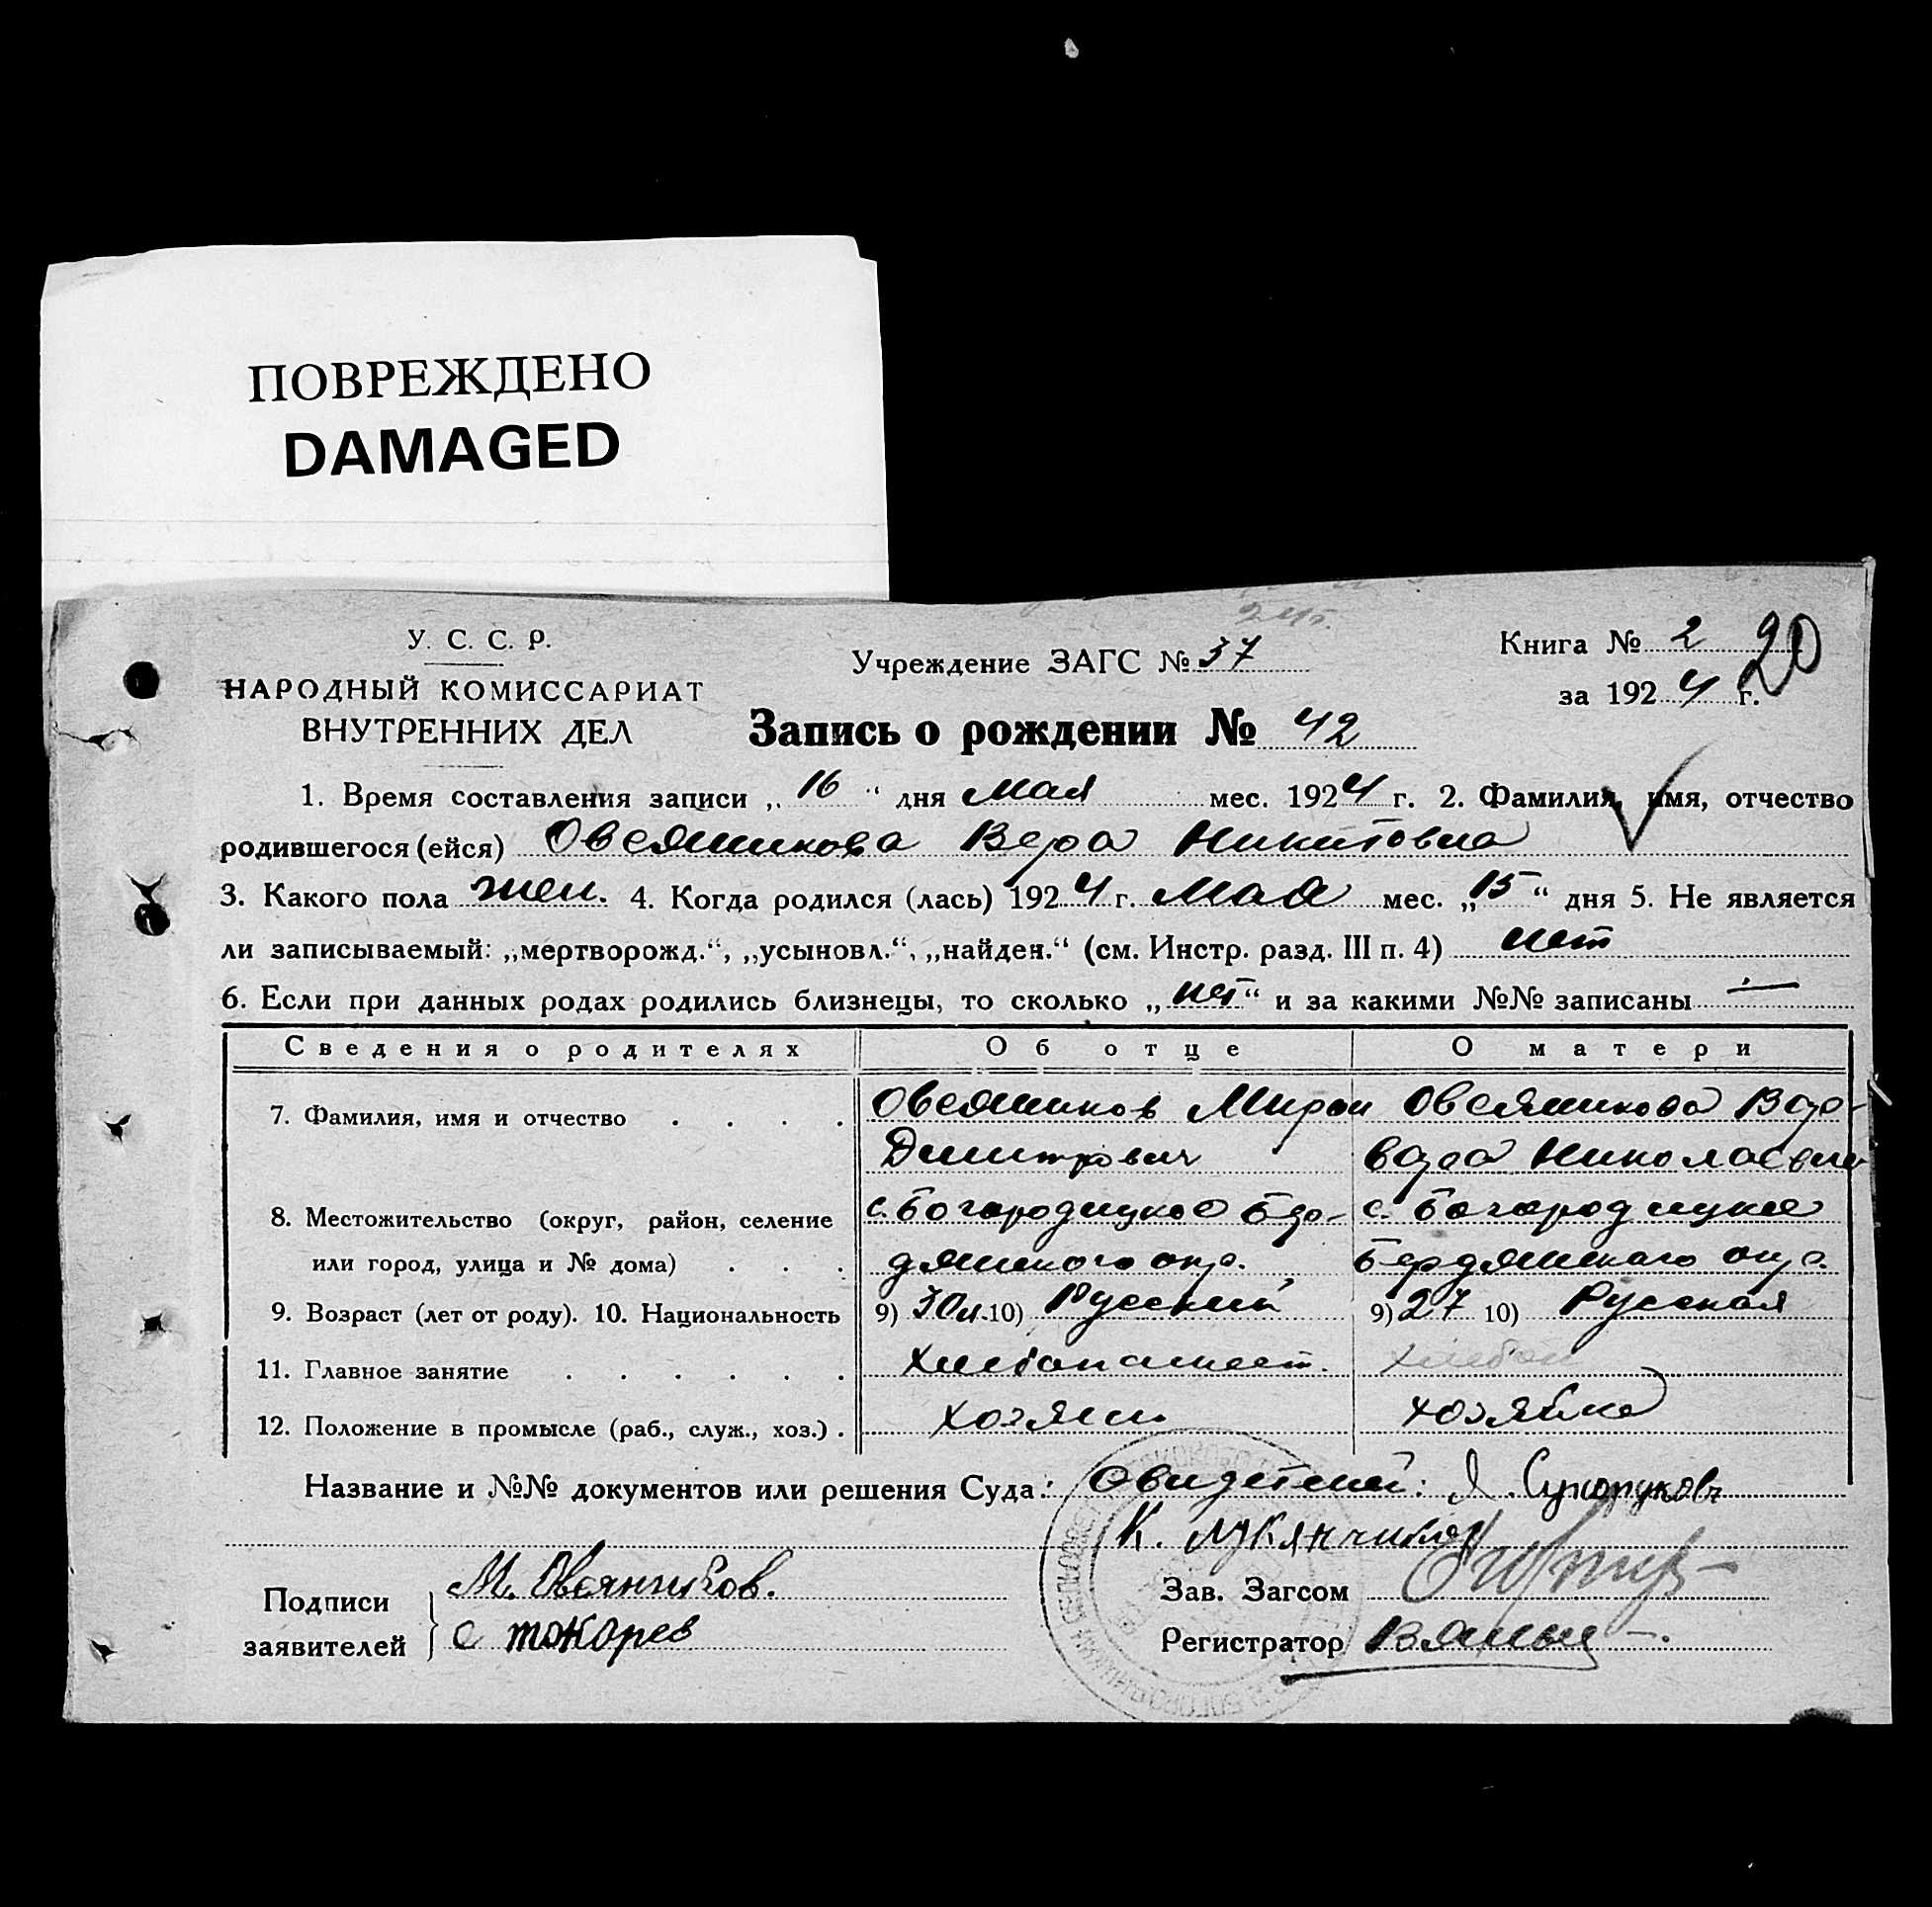 ПОВРЕЖДЕНО
DAMAGED
У. С. С. Р.
НАРОДНЫЙ КОМИССАРИАТ
ВНУТРЕННИХ ДЕЛ
Учреждение ЗАГС № 37
Книга № 2 20
за 1924 г.
Запись о рождении № 42
1. Время составления записи „16“ дня Мая мес. 1924 г. 2. Фамилия, имя, отчество
родившегося (ейся) Овсянникова Вера Никитовна
3. Какого пола жен. 4. Когда родился (лась) 1924 г. Мая мес. „15“ дня 5. Не является
ли записываемый: „мертворожд.“, „усыновл.“, „найден.“ (см. Инстр. разд. III п. 4) нет
6. Если при данных родах родились близнецы, то сколько „нет“ и за какими №№ записаны —
Сведения о родителях Об отце О матери
7. Фамилия, имя и отчество . . . . Овсянников Мирон Овсянникова Вар-
Дмитрович вара Николаевна
8. Местожительство (округ, район, селение с. Богородицкое Бер- с. Богородицкое
или город, улица и № дома) . . . дянского окр. Бердянского окр.
9. Возраст (лет от роду). 10. Национальность 9) 30 л. 10) Русский 9) 27 10) Русская
11. Главное занятие . . . . . . хлебопашест. хлебоп
12. Положение в промысле (раб., служ., хоз.) . хозяин хозяйка
Название и №№ документов или решения Суда: Свидетели: Я.
К. Лукянчиков
Подписи заявителей
М. Овсянников.
С Токарев
Зав. Загсом
Регистратор